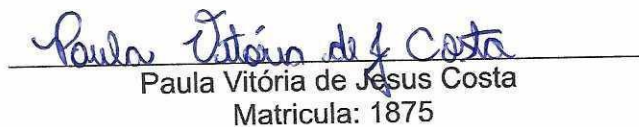 Paula Vitória de J Costa
Paula Vitória de Jesus Costa
Matricula: 1875